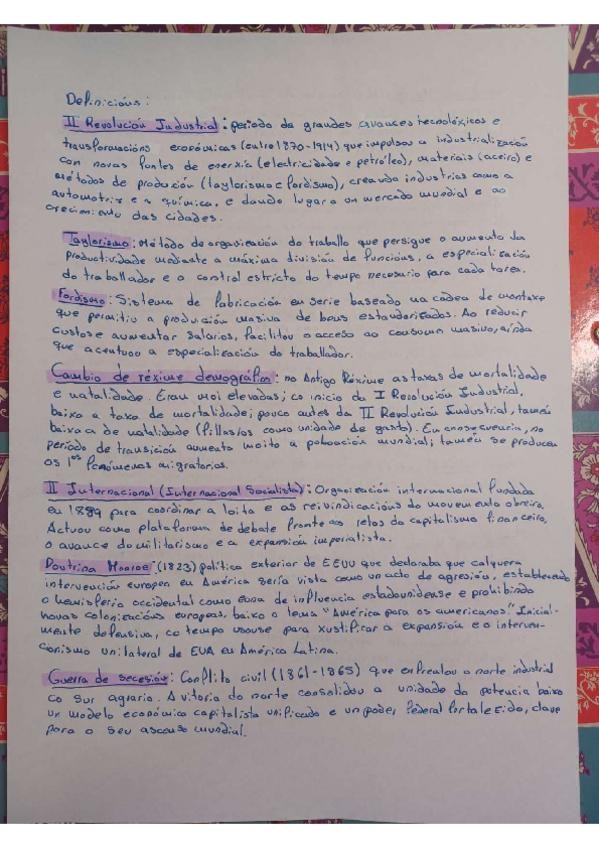 Definicións:
II Revolución Industrial: período de grandes avances tecnolóxicos e
transformacións económicas (entre 1870-1914) que impulsou a industrialización
con novas fontes de enerxía (electricidade e petróleo), materiais (aceiro) e
métodos de produción (taylorismo e fordismo), creando industrias como a
automotriz e a química, e dando lugar a un mercado mundial e ao
crecimiento das cidades.
Taylorismo: Método de organización do traballo que persigue o aumento da
productividade mediante a máxima división de funcións, a especialización
do traballador e o control estricto do tempo necesario para cada tarea.
Fordismo: Sistema de fabricación en serie baseado na cadea de montaxe
que permitiu a produción masiva de bens estandarizados. Ao reducir
custos e aumentar salarios, facilitou o acceso ao consumo masivo, ainda
que acentuou a especialización do traballador.
Cambio de réxime demográfico: no Antigo Réxime as taxas de mortalidade
e natalidade. Eran moi elevadas; co inicio da I Revolución Industrial,
baixa a taxa de mortalidade; pouco antes da II Revolución Industrial, tamén
baixa a de natalidade (fillas/os como unidade de gasto). En consecuencia, no
período de transición aumenta moito a poboación mundial; tamén se producen
os 1os fenómenos migratorios.
II Internacional (Internacional Socialista): Organización internacional fundada
en 1889 para coordinar a loita e as reivindicacións do movemento obreiro.
Actuou como plataforma de debate fronte aos retos do capitalismo financeiro,
o avance do militarismo e a expansión imperialista.
Doutrina Monroe (1823) política exterior de EEUU que declaraba que calquera
intervención europea en América sería vista como un acto de agresión, establecendo
o hemisferio occidental como zona de influencia estadounidense e prohibindo
novas colonizacións europeas, baixo o lema "América para os americanos" Inicial-
mente defensiva, co tempo usouse para xustificar a expansión e o interven-
cionismo unilateral de EUA en América Latina.
Guerra de secesión: Conflito civil (1861-1865) que enfrentou o norte industrial
co sur agrario. A vitoria do norte consolidou a unidade da potencia baixo
un modelo económico capitalista unificado e un poder federal fortalecido, clave
para o seu ascenso mundial.